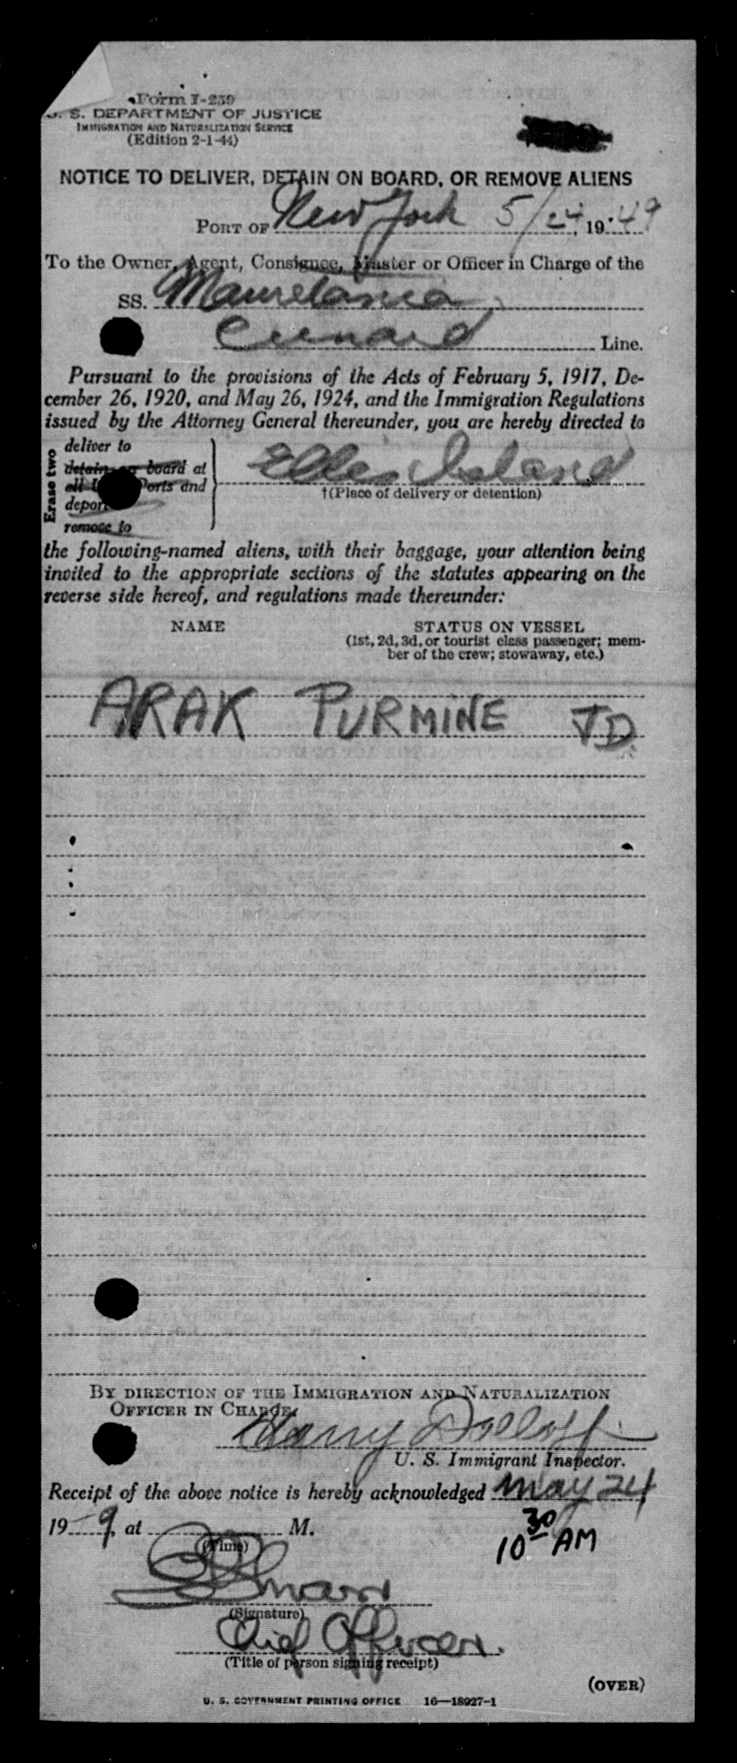 Form I-259
U. S. DEPARTMENT OF JUSTICE
IMMIGRATION AND NATURALIZATION SERVICE
(Edition 2-1-44)
NOTICE TO DELIVER, DETAIN ON BOARD, OR REMOVE ALIENS
PORT OF New York 5/24, 1949
To the Owner, Agent, Consignee, Master or Officer in Charge of the
SS. Mauretania,
Cunard Line.
Pursuant to the provisions of the Acts of February 5, 1917, De-
cember 26, 1920, and May 26, 1924, and the Immigration Regulations
issued by the Attorney General thereunder, you are hereby directed to
Erase two
deliver to
detain on board at
all Ports and
deport
remove to
Ellis Island
†(Place of delivery or detention)
the following-named aliens, with their baggage, your attention being
invited to the appropriate sections of the statutes appearing on the
reverse side hereof, and regulations made thereunder:
NAME STATUS ON VESSEL
(1st, 2d, 3d, or tourist class passenger; mem-
ber of the crew; stowaway, etc.)
ARAK PURMINE TD.
BY DIRECTION OF THE IMMIGRATION AND NATURALIZATION
OFFICER IN CHARGE:
Harry
U. S. Immigrant Inspector.
Receipt of the above notice is hereby acknowledged May 24
19 9, at M.
10 30 AM
(Time)
(Signature)
Chief Officer.
(Title of person signing receipt)
(OVER)
U. S. GOVERNMENT PRINTING OFFICE 16—18927-1